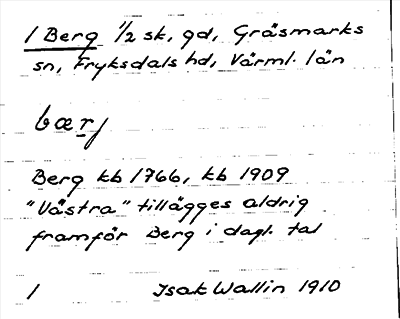 1 Berg ½ sk, gd, Gräsmarks
sn, Fryksdals hd, Värml. län
bærj
Berg kb 1766, kb 1909
"Västra" tillägges aldrig
framför Berg i dagl. tal
1 Isak Wallin 1910